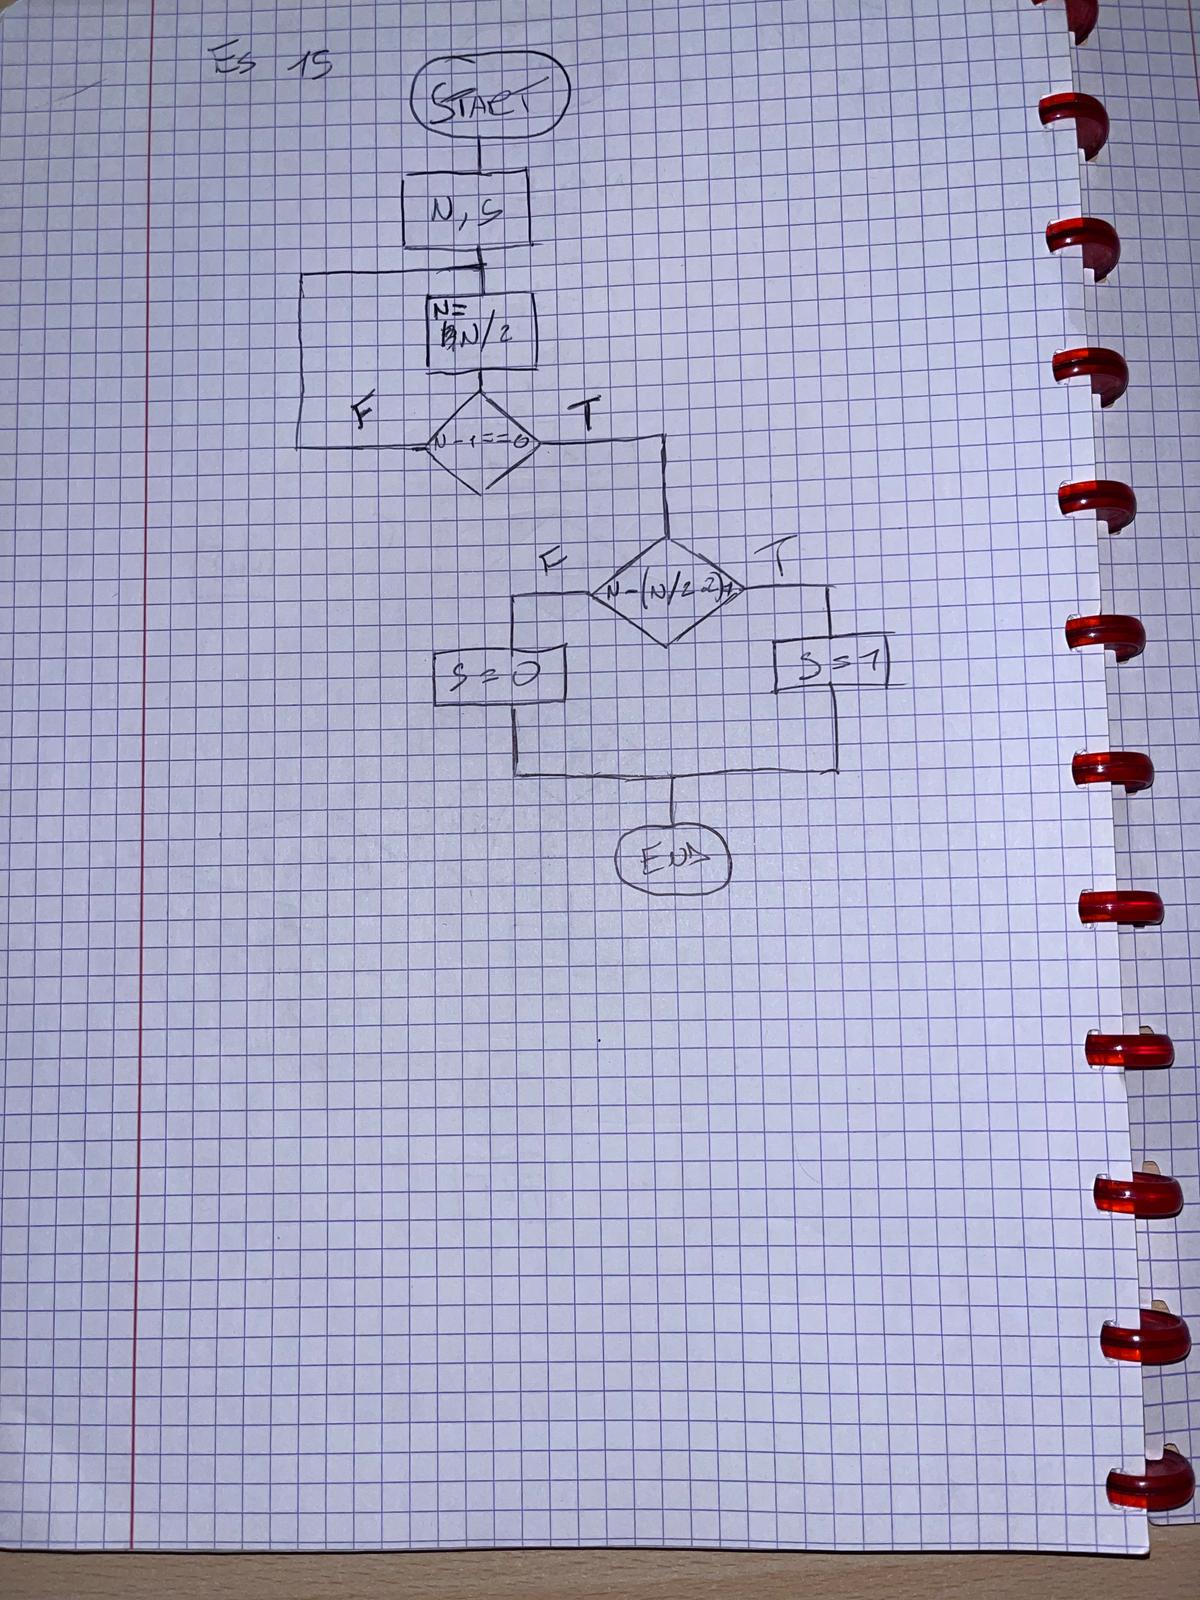 Es 15
START
N, S
N=
N/2
F
T
N-1==0
F
T
N-(N/2·2)
S=0
S=1
END